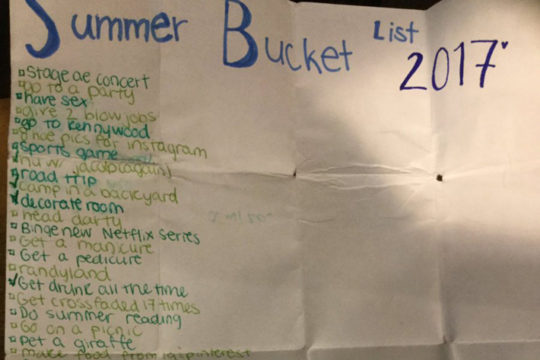 Summer Bucket List 2017
stage ae concert
go to a party
have sex
give 2 blowjobs
go to kennywood
9 nice pics for instagram
sports game
road trip
camp in a backyard
decorate room
head darty
Binge new Netflix series
Get a manicure
Get a pedicure
randyland
Get drunk all the time
Get crossfaded 17 times
Do summer reading
Go on a picnic
pet a giraffe
make food from pinterest